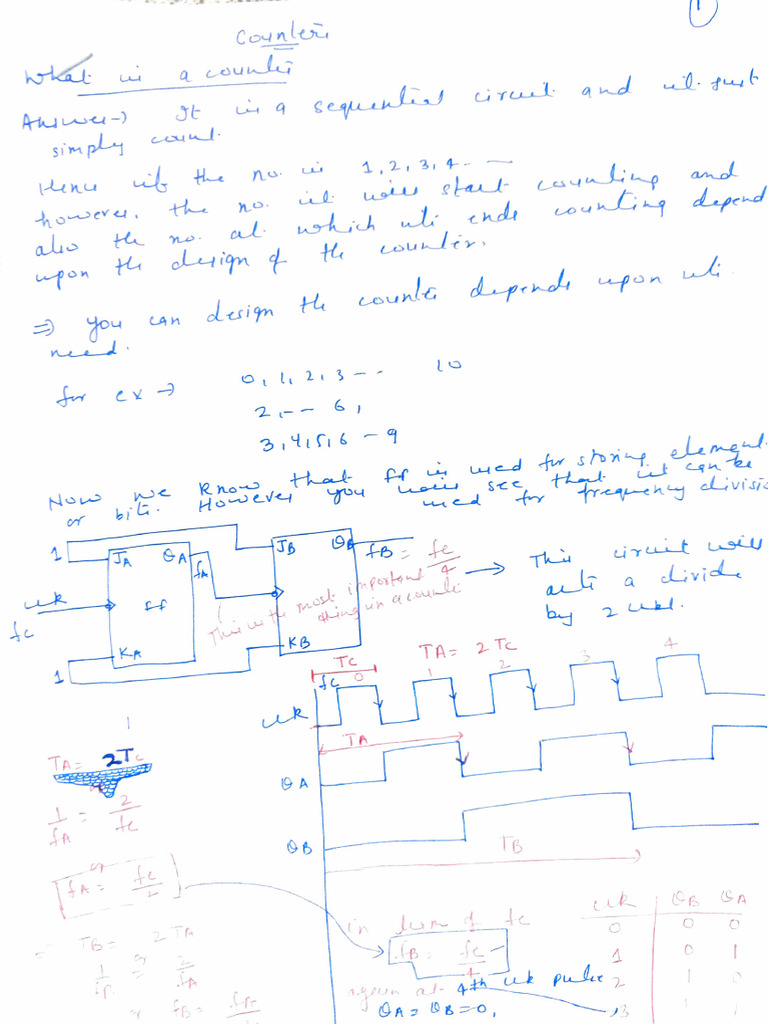 1
Counter
What is a counter
Answer→ It is a sequential circuit and it just
simply count.
Hence if the no. is 1, 2, 3, 4 - - —
however, the no. it will start counting and
also the no. at which it ends counting depend
upon the design of the counter.
⇒ you can design the counter depends upon
need.
for ex → 0, 1, 2, 3 - - 10
2, - - 6,
3, 4, 5, 6 - 9
Now we know that ff is used for storing element
or bits. However you will see that it can be
used for frequency divisio
1 JA QA fA JB QB fB = fc/4 → This circuit will
clk fc ff acts a divide
by 2 ckt.
This is the most important
thing in a counter
1 KA KB
TA = 2Tc
Tc
fc 0 1 2 3 4
clk
TA
QA
QB
TB
TA = 2Tc
1/fA = 2/fc
fA = fc/2
TB = 2TA
1/fB = 2/fA
fB = fA
in term of fc
fB = fc/4
again at 4th clk pulse
QA = QB = 0,
clk QB QA
0 0 0
1 0 1
2 1 0
3 1 1